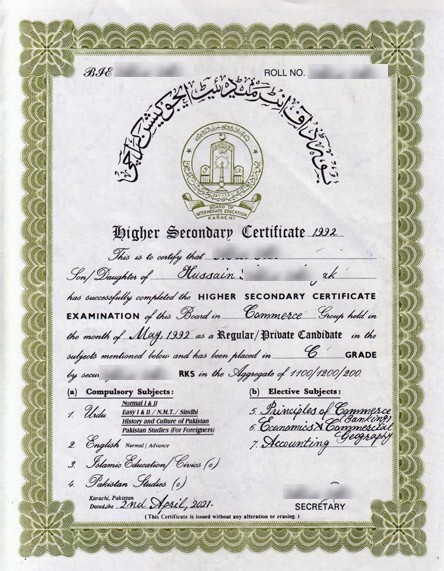 BIE
ROLL NO.
بورڈ آف انٹرمیڈیٹ ایجوکیشن کراچی
BOARD OF
INTERMEDIATE EDUCATION
KARACHI
Higher Secondary Certificate 1992
This is to certify that
Son/Daughter of Hussain
has successfully completed the HIGHER SECONDARY CERTIFICATE
EXAMINATION of this Board in Commerce Group held in
the month of May, 1992 as a Regular/Private Candidate in the
subjects mentioned below and has been placed in C GRADE
by secu RKS in the Aggregate of 1100/1200/200.
(a) Compulsory Subjects:
1. Urdu Normal I & II
Easy I & II / N.M.T. / Sindhi
History and Culture of Pakistan
Pakistan Studies (For Foreigners)
2. English Normal / Advance
3. Islamic Education/Civics (o)
4. Pakistan Studies (o)
(b) Elective Subjects:
5. Principles of Commerce
& Banking
6. Economics & Commercial
Geography
7. Accounting
Karachi, Pakistan
Dated, the 2nd April, 2021.
SECRETARY
(This Certificate is issued without any alteration or erasing.)